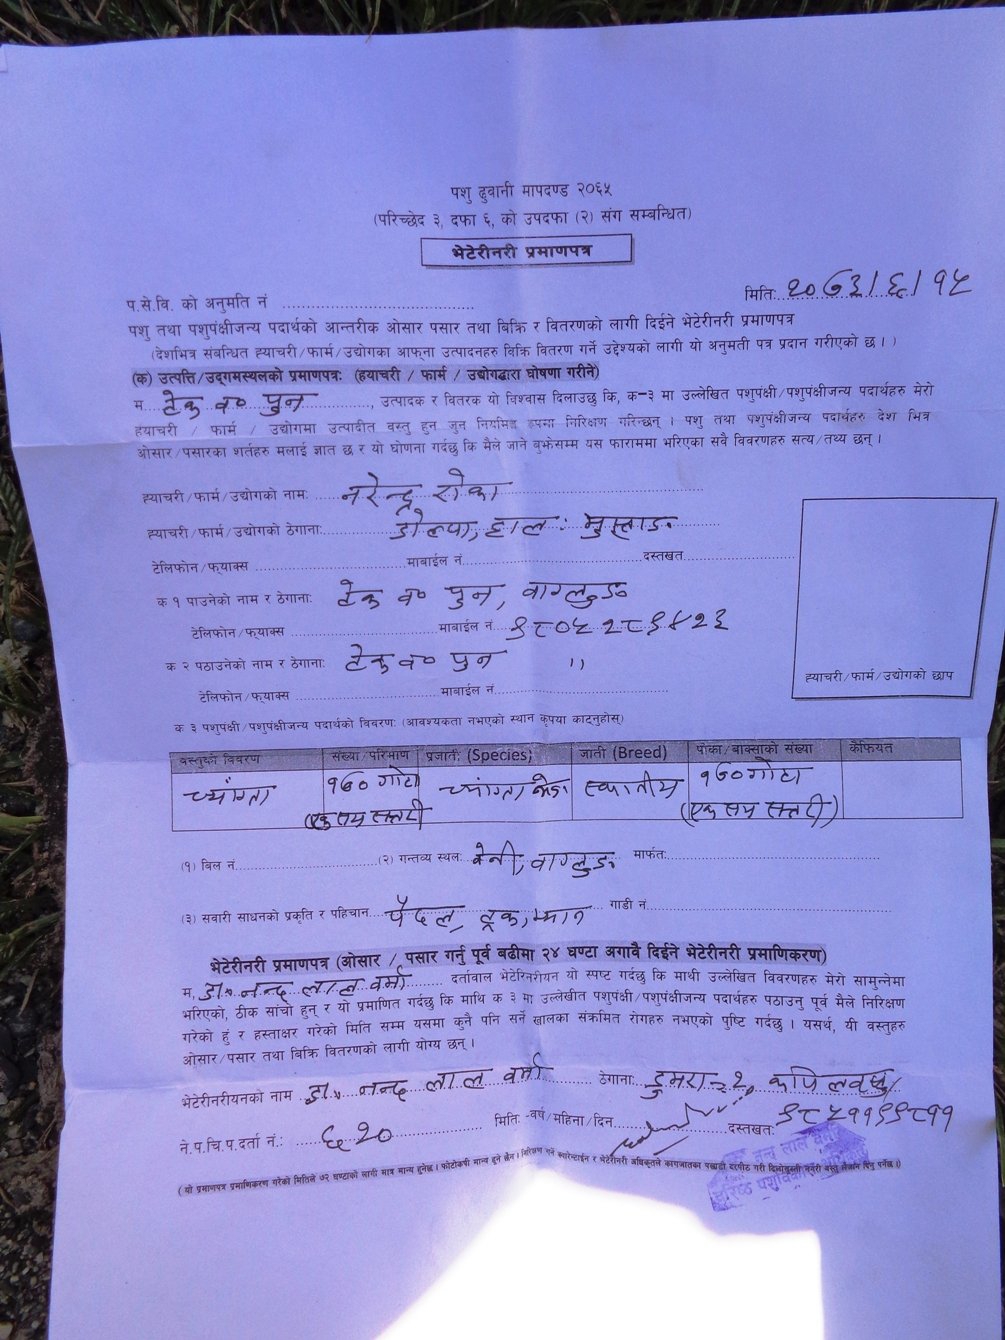 पशु ढुवानी मापदण्ड २०६५
(परिच्छेद ३, दफा ६, को उपदफा (२) संग सम्बन्धित)
भेटेरीनरी प्रमाणपत्र
मिति: २०७३/६/१५
प.से.वि. को अनुमति नं
पशु तथा पशुपंक्षीजन्य पदार्थको आन्तरीक ओसार पसार तथा बिक्रि र वितरणको लागी दिईने भेटेरीनरी प्रमाणपत्र
(देशभित्र संबन्धित ह्याचरी/फार्म/उद्योगका आफ्ना उत्पादनहरु विक्रि वितरण गर्ने उद्देश्यको लागी यो अनुमती पत्र प्रदान गरीएको छ।)
(क) उत्पत्ति/उद्गमस्थलको प्रमाणपत्र: (हयाचरी / फार्म / उद्योगद्वारा घोषणा गरीने)
म टेक ब० पुन, उत्पादक र वितरक यो विश्वास दिलाउछु कि, क-३ मा उल्लेखित पशुपंक्षी/पशुपंक्षीजन्य पदार्थहरु मेरो
हयाचरी / फार्म / उद्योगमा उत्पादीत वस्तु हुन जुन नियमित रुपमा निरिक्षण गरिन्छन्। पशु तथा पशुपंक्षीजन्य पदार्थहरु देश भित्र
ओसार/पसारका शर्तहरु मलाई ज्ञात छ र यो घोणना गर्दछु कि मैले जाने बुझेसम्म यस फाराममा भरिएका सबै विवरणहरु सत्य/तथ्य छन्।
ह्याचरी/फार्म/उद्योगको नाम: नरेन्द्र रोका
ह्याचरी/फार्म/उद्योगको ठेगाना: डोल्पा, हाल: मुस्ताङ
टेलिफोन/फ्याक्स माबाईल नं दस्तखत
क १ पाउनेको नाम र ठेगाना: टेक ब० पुन, बाग्लुङ
टेलिफोन/फ्याक्स माबाईल नं ९८०५२८९४२३
क २ पठाउनेको नाम र ठेगाना: टेक ब० पुन "
टेलिफोन/फ्याक्स माबाईल नं
ह्याचरी/फार्म/उद्योगको छाप
क ३ पशुपंक्षी/पशुपंक्षीजन्य पदार्थको विवरण: (आवश्यकता नभएको स्थान कृपया काट्नुहोस्)
वस्तुको विवरण संख्या/परिमाण प्रजाती: (Species) जाती (Breed) पोका/बाक्साको संख्या कैफियत
च्यांग्रा १७० गोटा च्यांग्रा स्थानीय १७० गोटा
(एक सय सत्तरी (एक सय सत्तरी)
(१) बिल नं (२) गन्तव्य स्थल: बेनी, बाग्लुङ मार्फत:
(३) सवारी साधनको प्रकृति र पहिचान पैदल, ट्रक, भ्यान गाडी नं
भेटेरीनरी प्रमाणपत्र (ओसार / पसार गर्नु पूर्व बढीमा २४ घण्टा अगावै दिईने भेटेरीनरी प्रमाणिकरण)
म, डा. नन्द लाल वर्मा दर्तावाल भेटेरिनरीयन यो स्पष्ट गर्दछु कि माथी उल्लेखित विवरणहरु मेरो सामुन्नेमा
भरिएको, ठीक साँचो हुन् र यो प्रमाणित गर्दछु कि माथि क ३ मा उल्लेखीत पशुपंक्षी/पशुपंक्षीजन्य पदार्थहरु पठाउनु पूर्व मैले निरिक्षण
गरेको हुं र हस्ताक्षर गरेको मिति सम्म यसमा कुनै पनि सर्ने खालका संक्रमित रोगहरु नभएको पुष्टि गर्दछु। यसर्थ, यी वस्तुहरु
ओसार/पसार तथा बिक्रि वितरणको लागी योग्य छन्।
भेटेरीनरीयनको नाम डा. नन्द लाल वर्मा ठेगाना: डुमरा-२, कपिलवस्तु
ने.प.चि.प.दर्ता नं.: ६२० मिति: -वर्ष/महिना/दिन दस्तखत: ९८५११९९८११
(यो प्रमाणपत्र प्रमाणिकरण गरेको मितिले ७२ घण्टाको लागी मात्र मान्य हुनेछ। फोटोकपी मान्य हुने छैन।